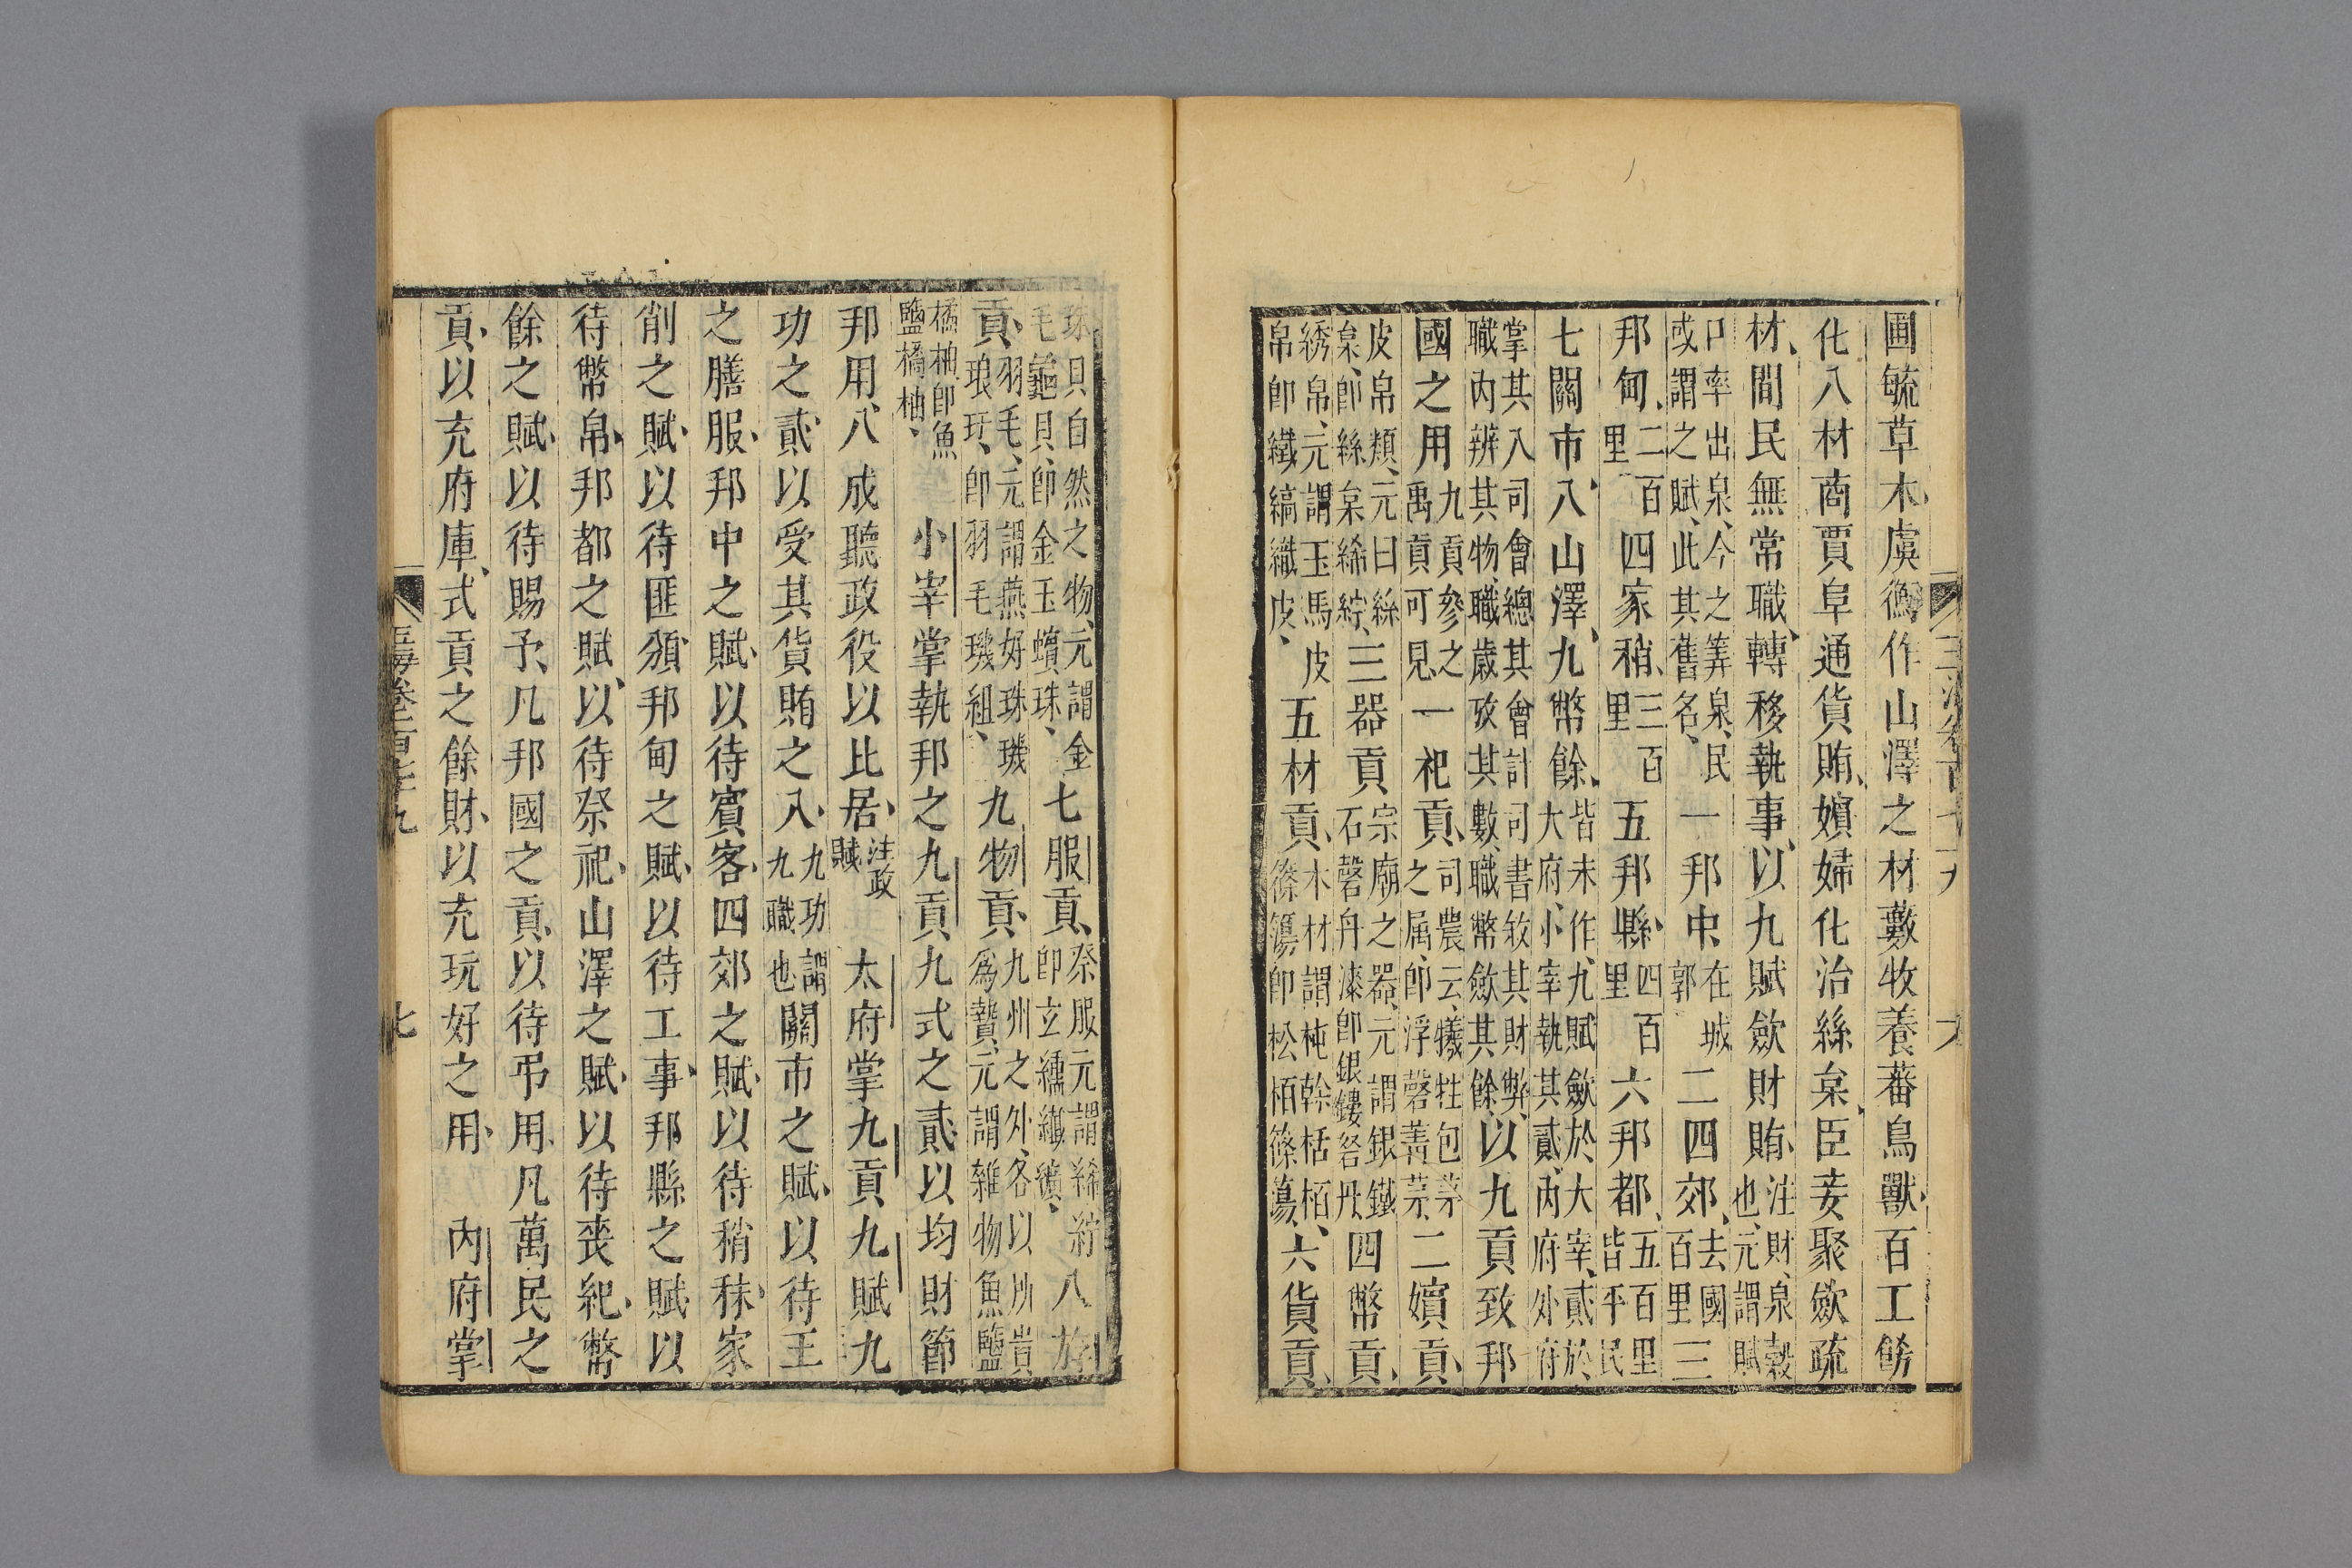 圃毓草木虞衡作山澤之材藪牧養蕃鳥獸百工飭
化八材商賈阜通貨賄嬪婦化治絲枲臣妾聚歛疏
材間民無常職轉移執事以九賦歛財賄注財泉穀也元謂賦
口率出泉今之筭泉民或謂之賦此其舊名一邦中在城郭二四郊去國百里三
邦甸二百里四家稍三百里五邦縣四百里六邦都五百里皆平民
七關市八山澤九幣餘皆未作九賦歛於大宰貳於大府小宰執其貳內府外府
掌其入司會總其會計司書敘其財幣職內辨其物職歲攷其數職幣歛其餘以九貢致邦
國之用九貢參之禹貢可見一祀貢司農云犧牲包茅之属卽浮磬菁茅二嬪貢
皮帛類元曰絲枲卽絲枲絺綌三器貢宗廟之器元謂銀鐵石磬丹漆卽銀鏤砮丹四幣貢
綉帛元謂玉馬皮帛卽纎縞織皮五材貢木材謂杶榦栝栢篠簜卽松栢篠簜六貨貢
珠貝自然之物元謂金毛龜貝卽金玉蠙珠七服貢祭服元謂絺紵卽玄纁纎纊八斿
貢羽毛元謂燕好珠璣琅玕卽羽毛璣組九物貢九州之外各以所貴爲贄元謂雜物魚鹽
橘柚卽魚鹽橘柚小宰掌執邦之九貢九式之貳以均財節
邦用八成聽政役以比居注政賦太府掌九貢九賦九
功之貳以受其貨賄之入九功謂九職也關市之賦以待王
之膳服邦中之賦以待賓客四郊之賦以待稍秣家
削之賦以待匪頒邦甸之賦以待工事邦縣之賦以
待幣帛邦都之賦以待祭祀山澤之賦以待喪紀幣
餘之賦以待賜予凡邦國之貢以待弔用凡萬民之
貢以充府庫式貢之餘財以充玩好之用內府掌